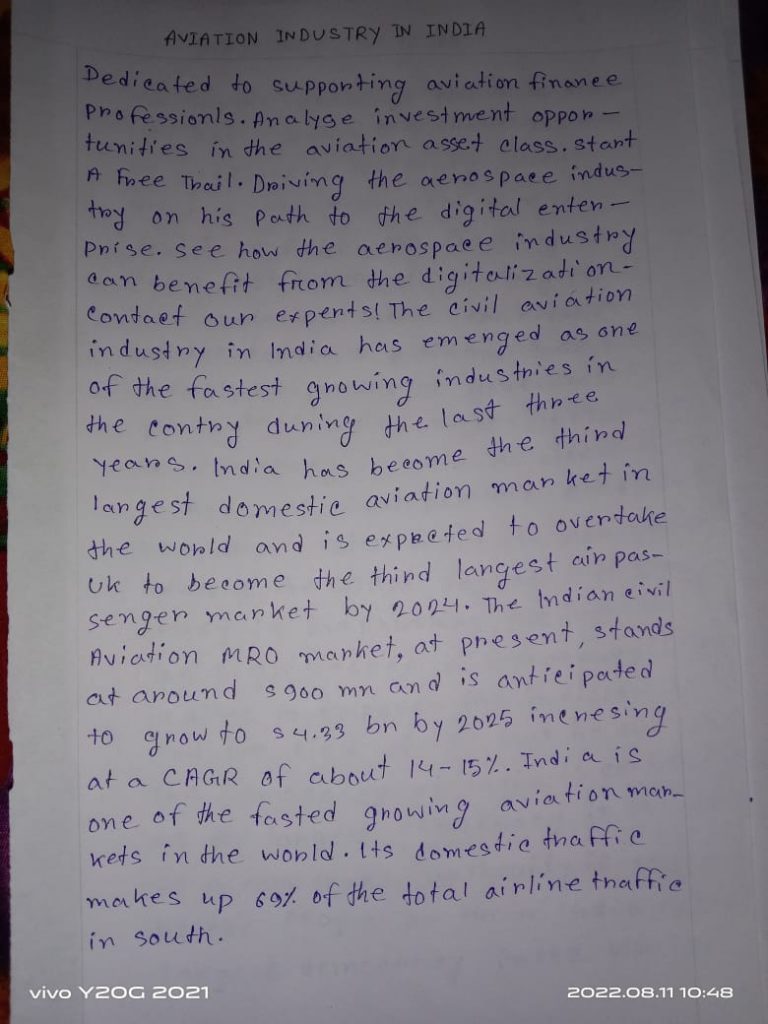 AVIATION INDUSTRY IN INDIA
Dedicated to supporting aviation finance
Professionls. Analyse investment oppor-
tunities in the aviation asset class. start
A Free Trail. Driving the aerospace indus-
try on his path to the digital enter-
prise. see how the aerospace industry
can benefit from the digitalization-
contact our experts! The civil aviation
industry in India has emerged as one
of the fastest growing industries in
the contry during the last three
years. India has become the third
largest domestic aviation market in
the world and is expected to overtake
UK to become the third largest air pas-
senger market by 2024. The Indian civil
Aviation MRO market, at present, stands
at around $900 mn and is anticipated
to grow to $4.33 bn by 2025 incresing
at a CAGR of about 14-15%. India is
one of the fasted growing aviation mar-
kets in the world. Its domestic traffic
makes up 69% of the total airline traffic
in south.
vivo Y20G 2021
2022.08.11 10:48